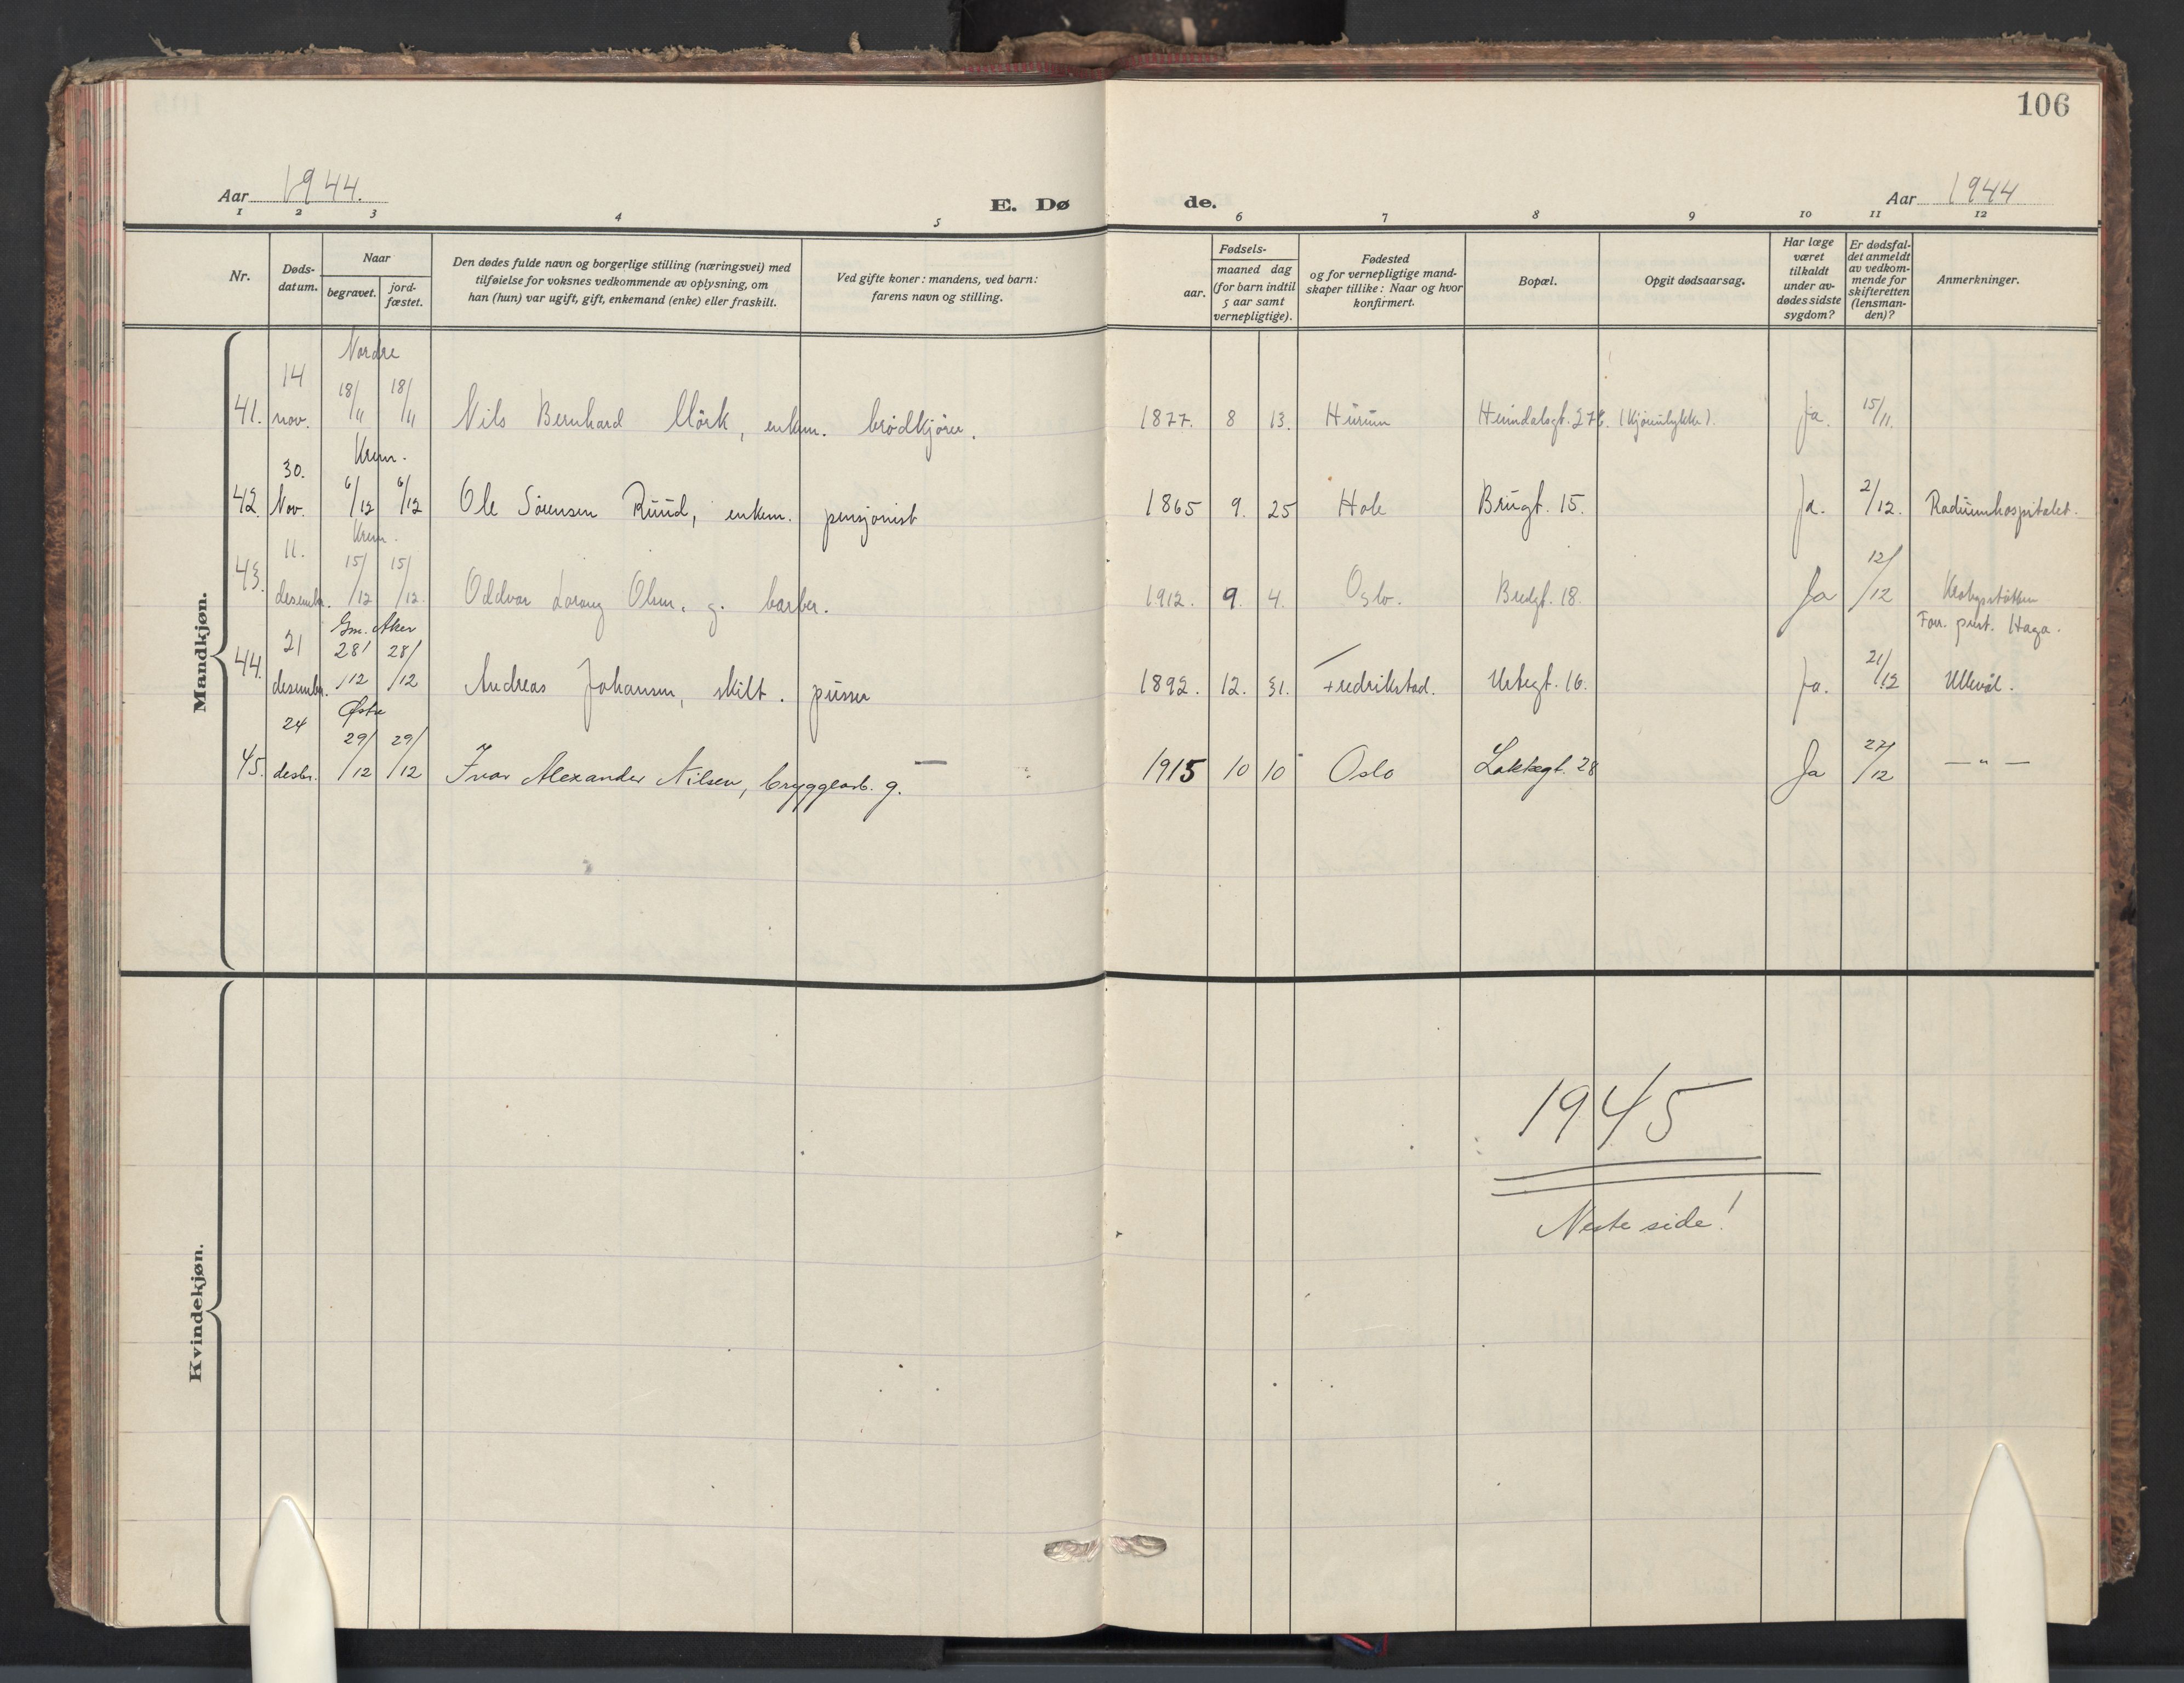 106
Aar 1944.
E. Dø de.
Aar 1944
1 2 3 4 5 6 7 8 9 10 11 12
Nr.
Døds-
datum.
Naar
begravet.
jord-
fæstet.
Den dødes fulde navn og borgerlige stilling (næringsvei) med
tilføielse for voksnes vedkommende av oplysning, om
han (hun) var ugift, gift, enkemand (enke) eller fraskilt.
Ved gifte koner: mandens, ved barn:
farens navn og stilling.
Fødsels-
aar.
maaned dag
(for barn indtil
5 aar samt
vernepligtige).
Fødested
og for vernepligtige mand-
skaper tillike: Naar og hvor
konfirmert.
Bopæl.
Opgit dødsaarsag.
Har læge
været
tilkaldt
under av-
dødes sidste
sygdom?
Er dødsfal-
det anmeldt
av vedkom-
mende for
skifteretten
(lensman-
den)?
Anmerkninger.
Mandkjøn.
Nordre
14 18/ 18/
41. nov. /11 /11 Nils Bernhard Mörk, enkem. brödkjörer. 1877. 8 13. Hurum Heimdalsgt. Ja. 15/11.
Krem.
30.
42. Nov. 6/12 6/12 Ole Sörensen Ruud, enkem. pensjonist 1865 9. 25 Hole Brugt. 15. Ja. 2/12. Radiumhospitalet.
Krem.
11. 15/ 15/ 12/
43. desember. /12 /12. Oddvar Olsen. g. barber. 1912. 9. 4. Oslo. Bredgt. 18. Ja /12
Forr. prest. Haga.
Gm. Aker
21 28/ 28/ 21/
44. desember. /12 /12 Andreas Johansen, skilt. pusser 1892. 12. 31. Fredrikstad. Urtegt. 16. Ja. /12 Ullevål.
Østre
24 29/ 29/ 27/
45. desbr. /12 /12 Ivar Alexander Nilsen, bryggearb. g. — 1915 10 10 Oslo Lakkegt. 28 Ja /12 — " —
Kvindekjøn.
1945
Neste side!